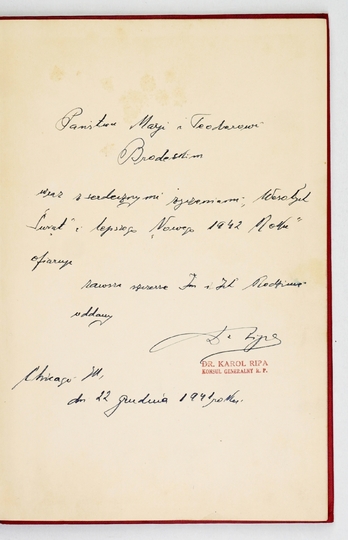 Państwu Marji i Teodorowi
Brodeskim
wraz z serdecznymi życzeniami „Wesołych
Świąt" i lepszego „Nowego 1942 Roku"
ofiaruje
zawsze szczerze Im i Ich Rodzinie
oddany
Dr Ripa
DR. KAROL RIPA
KONSUL GENERALNY R. P.
Chicago Ill,
dn 22 grudnia 1941 roku.